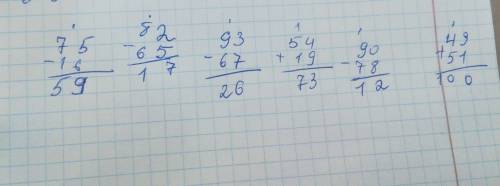 75
-16
59
82
-65
17
93
-67
26
1
54
+19
73
90
-78
12
49
+51
100